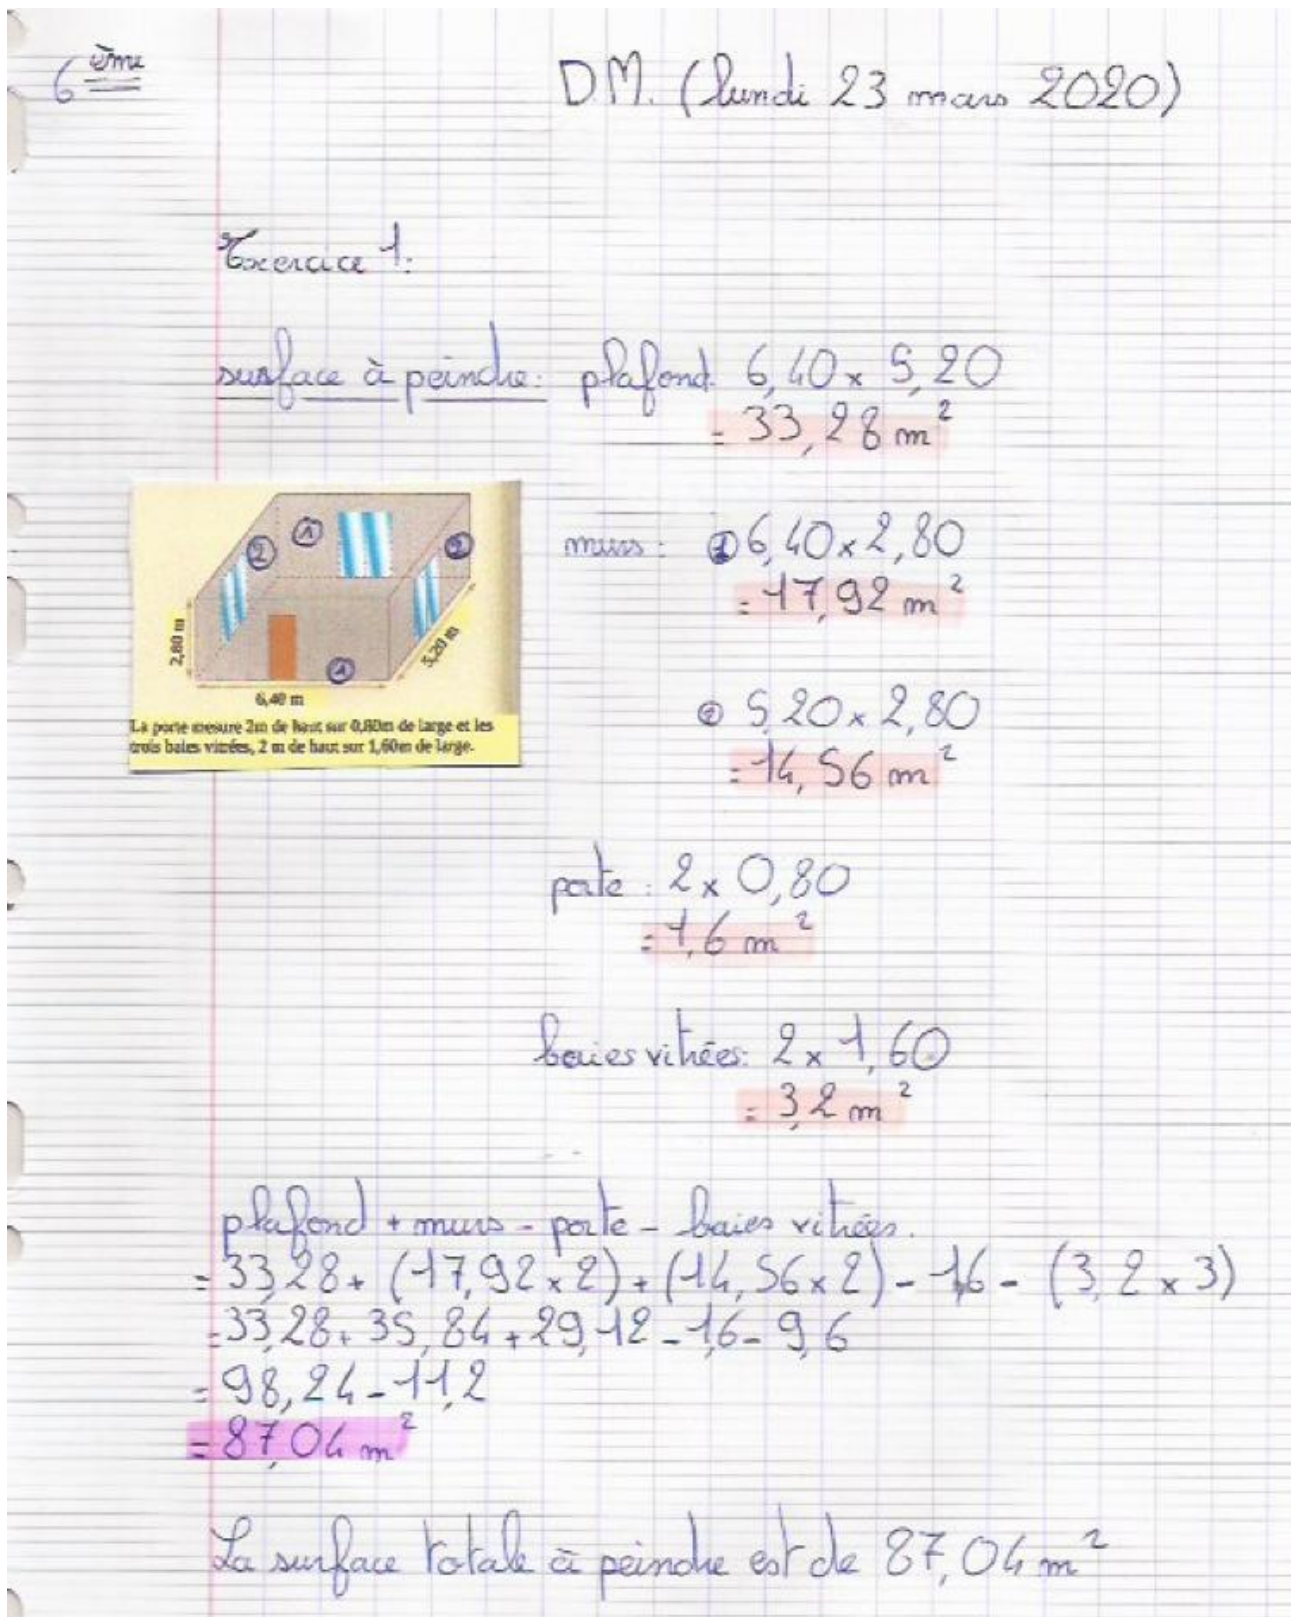 6ème
D.M. (lundi 23 mars 2020)
Exercice 1:
surface à peindre: plafond: 6,40 x 5,20
= 33,28 m²
① ② ②
murs: ① 6,40 x 2,80
= 17,92 m²
2,80 m
5,20 m
①
6,40 m
② 5,20 x 2,80
= 14,56 m²
La porte mesure 2m de haut sur 0,80m de large et les
trois baies vitrées, 2 m de haut sur 1,60m de large.
porte: 2 x 0,80
= 1,6 m²
baies vitrées: 2 x 1,60
= 3,2 m²
plafond + murs - porte - baies vitrées.
= 33,28 + (17,92 x 2) + (14,56 x 2) - 1,6 - (3,2 x 3)
= 33,28 + 35,84 + 29,12 - 1,6 - 9,6
= 98,24 - 11,2
= 87,04 m²
La surface totale à peindre est de 87,04 m²